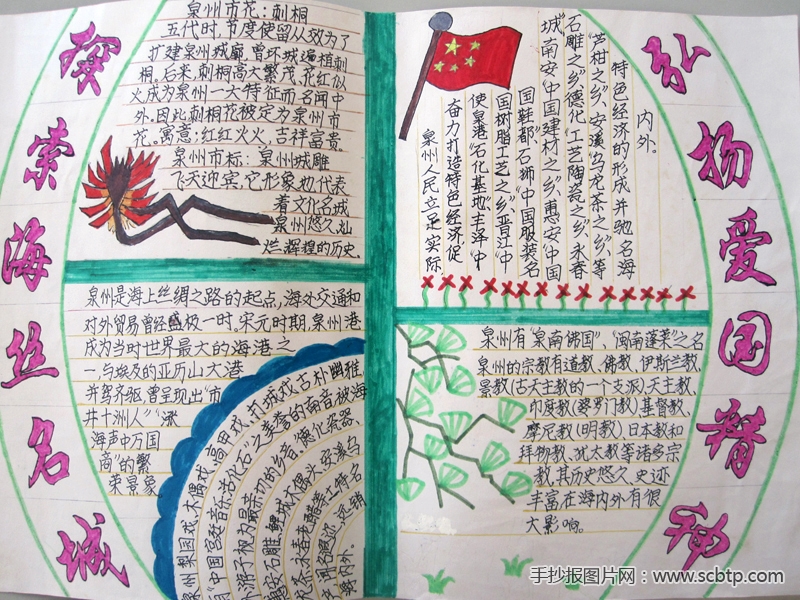 探索海丝名城
泉州市花:刺桐
五代时,节度使留从效为了
扩建泉州城廓,曾环城遍植刺
桐。后来,刺桐高大繁茂、花红似
火成为泉州一大特征而名闻中
外。因此刺桐花被定为泉州市
花。寓意:红红火火,吉祥富贵。
泉州市标:泉州城雕
飞天迎宾,它形象地代表
着文化名城
泉州悠久、灿
烂、辉煌的历史.
泉州是海上丝绸之路的起点,海外交通和
对外贸易曾经盛极一时。宋元时期,泉州港
成为当时世界最大的海港之
一与埃及的亚历山大港
并驾齐驱,曾呈现出“市
井十洲人”“涨
海声中万国
商”的繁
荣景象
泉州梨园戏、木偶戏、高甲戏、打城戏,古朴幽雅
泉州人民立足实际
奋力打造特色经济促
使泉港“石化基地”主泽“中
国树脂工艺之乡”、晋江“中
国鞋都”石狮“中国服装名
城”南安“中国建材之乡”、惠安“中国
石雕之乡”德化“工艺陶瓷之乡”、永春
“芦柑之乡”、安溪“乌龙茶之乡”、等
特色经济的形成并驰名海
内外。
泉州有“泉南佛国”、“闽南蓬莱”之名
泉州的宗教有道教、佛教、伊斯兰教、
景教(古天主教的一个支派)天主教、
印度教(婆罗门教)基督教、
摩尼教(明教)日本教和
拜物教、犹太教等诸多宗
教,其历史悠久、史迹
丰富在海内外有很
大影响。
弘扬爱国精神
手抄报图片网:www.scbtp.com